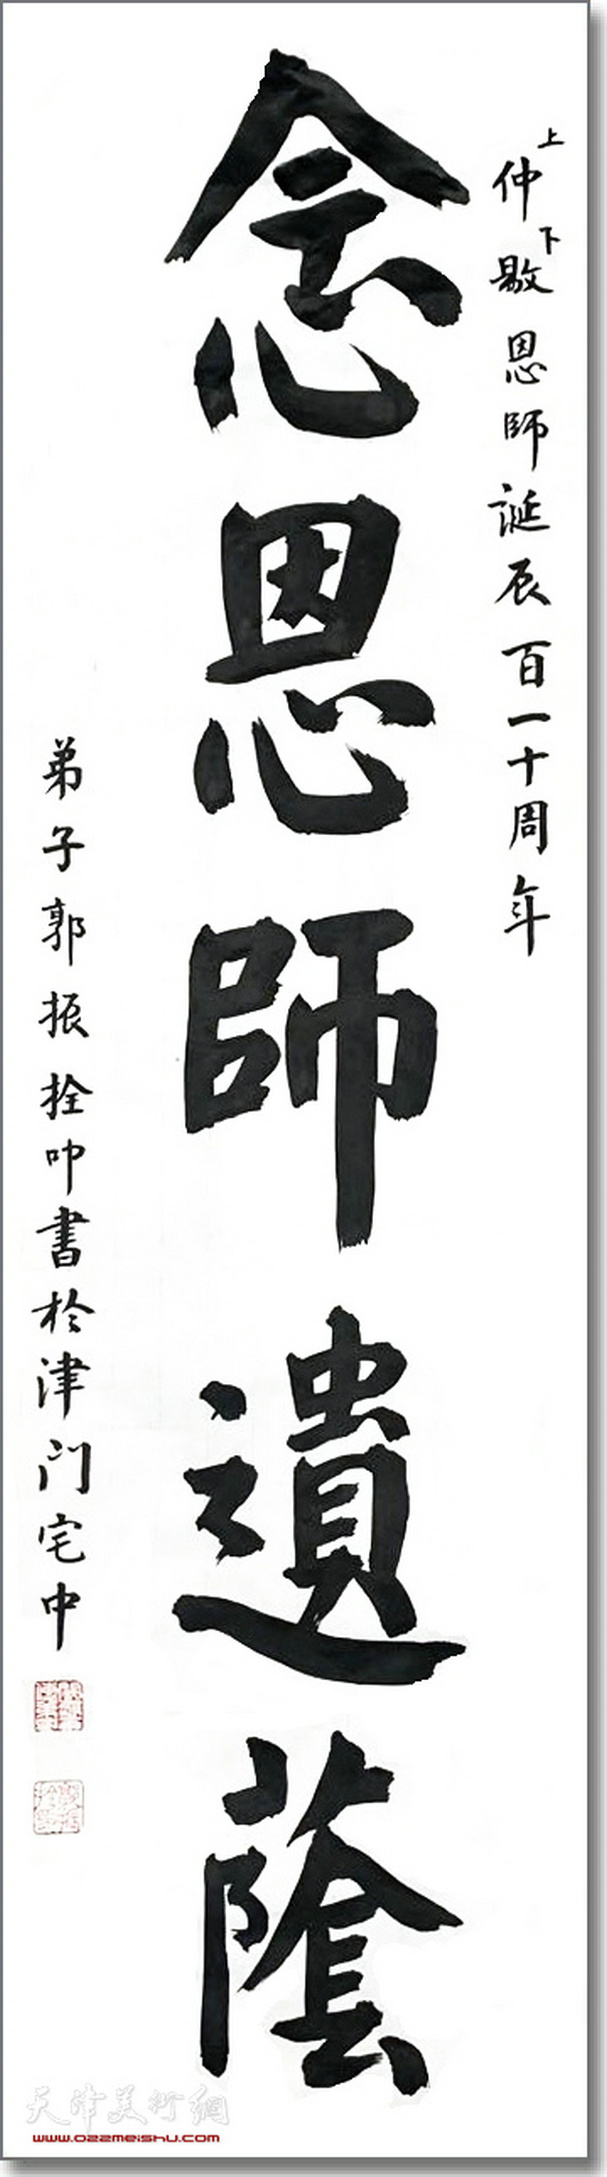 上仲下敭恩師誕辰百一十周年
念恩師遺蔭
弟子郭振拴叩書於津門宅中
天津美術網
www.022meishu.com